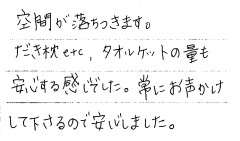 空間が落ちつきます。
だき枕etc, タオルケットの量も
安心する感じでした。常にお声かけ
して下さるので安心しました。